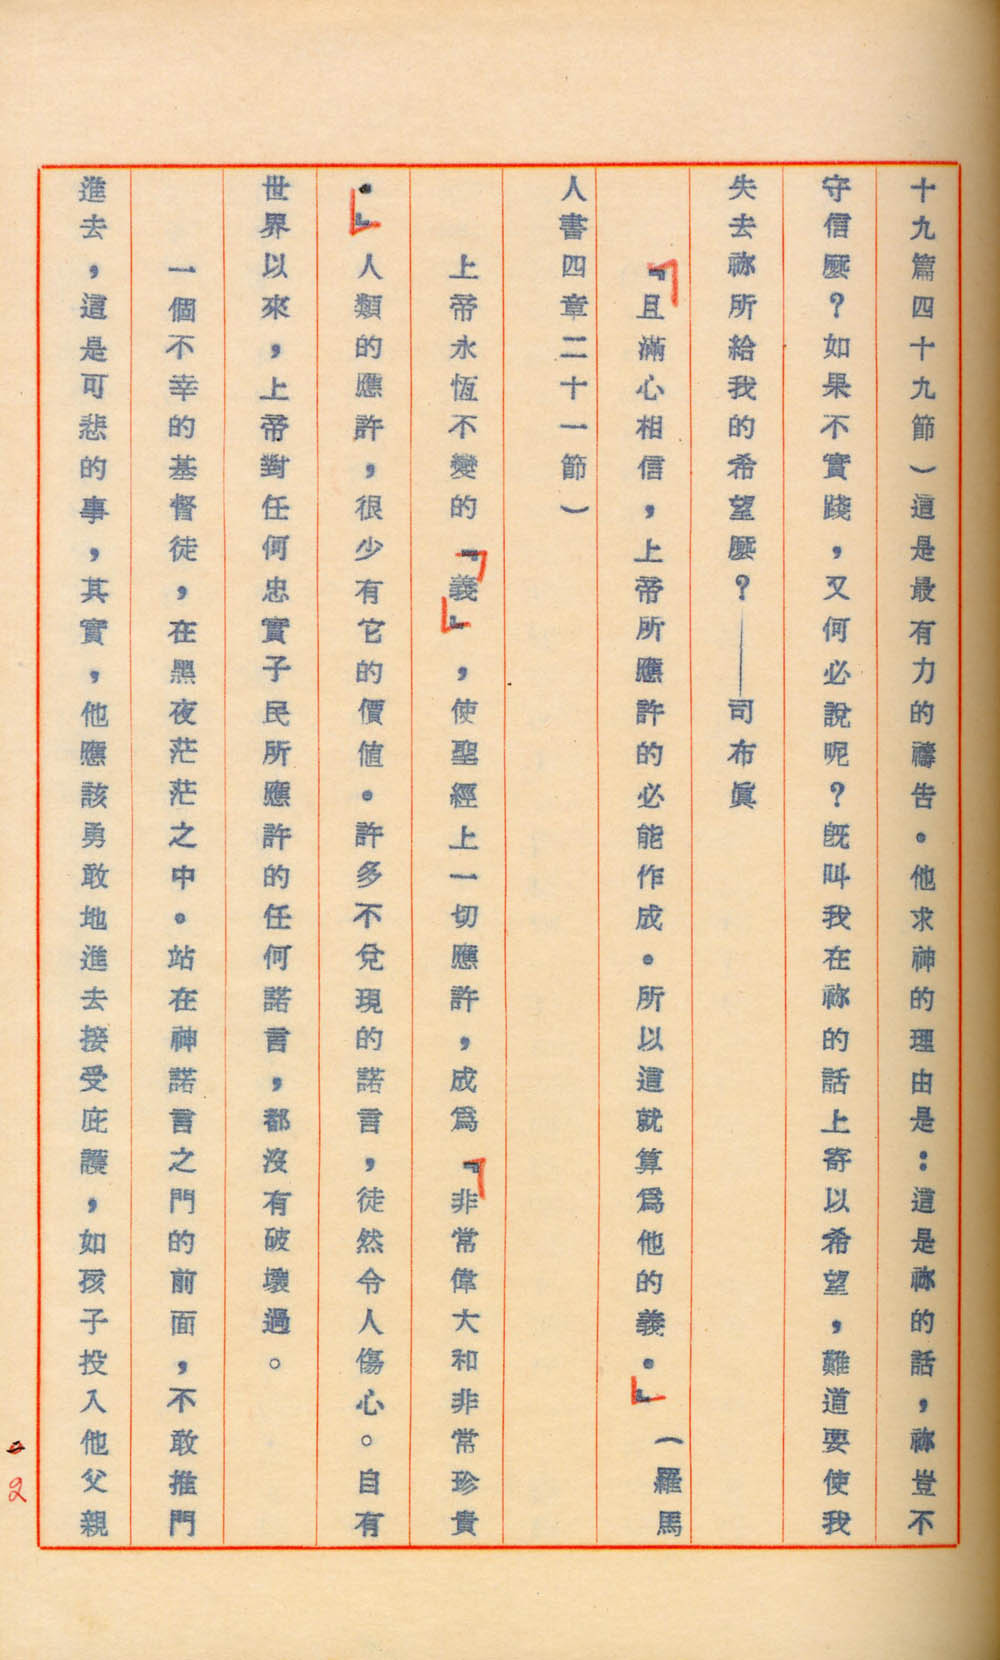 十九篇四十九節）這是最有力的禱告。他求神的理由是：這是祢的話，祢豈不
守信麼？如果不實踐，又何必說呢？既叫我在祢的話上寄以希望，難道要使我
失去祢所給我的希望麼？——司布眞
『且滿心相信，上帝所應許的必能作成。所以這就算爲他的義。』（羅馬
人書四章二十一節）
上帝永恆不變的『義』，使聖經上一切應許，成爲『非常偉大和非常珍貴
。』人類的應許，很少有它的價值。許多不兌現的諾言，徒然令人傷心。自有
世界以來，上帝對任何忠實子民所應許的任何諾言，都沒有破壞過。
一個不幸的基督徒，在黑夜茫茫之中。站在神諾言之門的前面，不敢推門
進去，這是可悲的事，其實，他應該勇敢地進去接受庇護，如孩子投入他父親
2